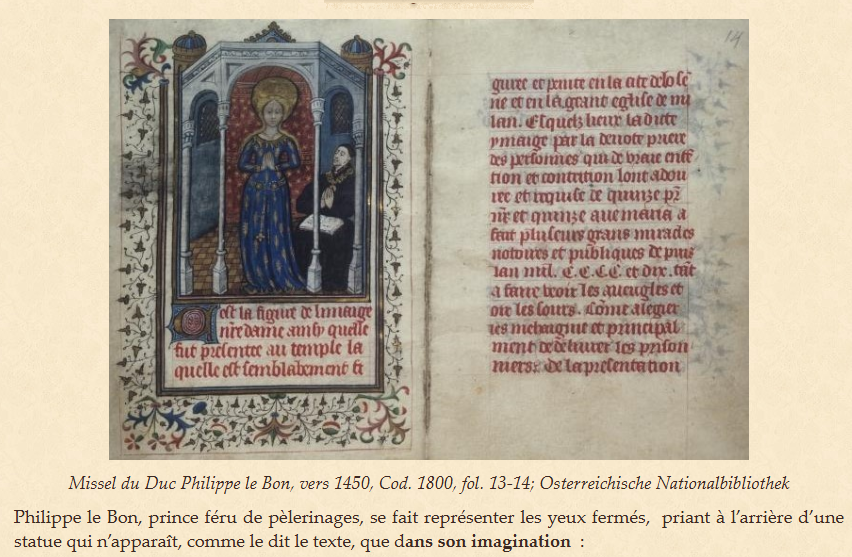 est la figure de limaige
nre dame ainsy quelle
fut presentee au temple la
quelle est semblablement fi
14
guree et peinte en la cite de lo se
ne et en la grant eglise de mi
lan. Esquelz lieux la dicte
ymaige par la devote priere
des personnes qui de vraie enten
tion et contrition lont adou
ree et requise de quinze pr
nr et quinze ave maria a
fait plusieurs grans miracles
notoires et publiques depuis
lan mil. C.C.C.C. et dix. tāt
a faire veoir les aveugles et
oir les sours. Cōme alegier
les mehaignt et principal
ment de delivrer les prison
niers. De la presentation
Missel du Duc Philippe le Bon, vers 1450, Cod. 1800, fol. 13-14; Osterreichische Nationalbibliothek
Philippe le Bon, prince féru de pèlerinages, se fait représenter les yeux fermés, priant à l'arrière d'une
statue qui n'apparaît, comme le dit le texte, que dans son imagination :